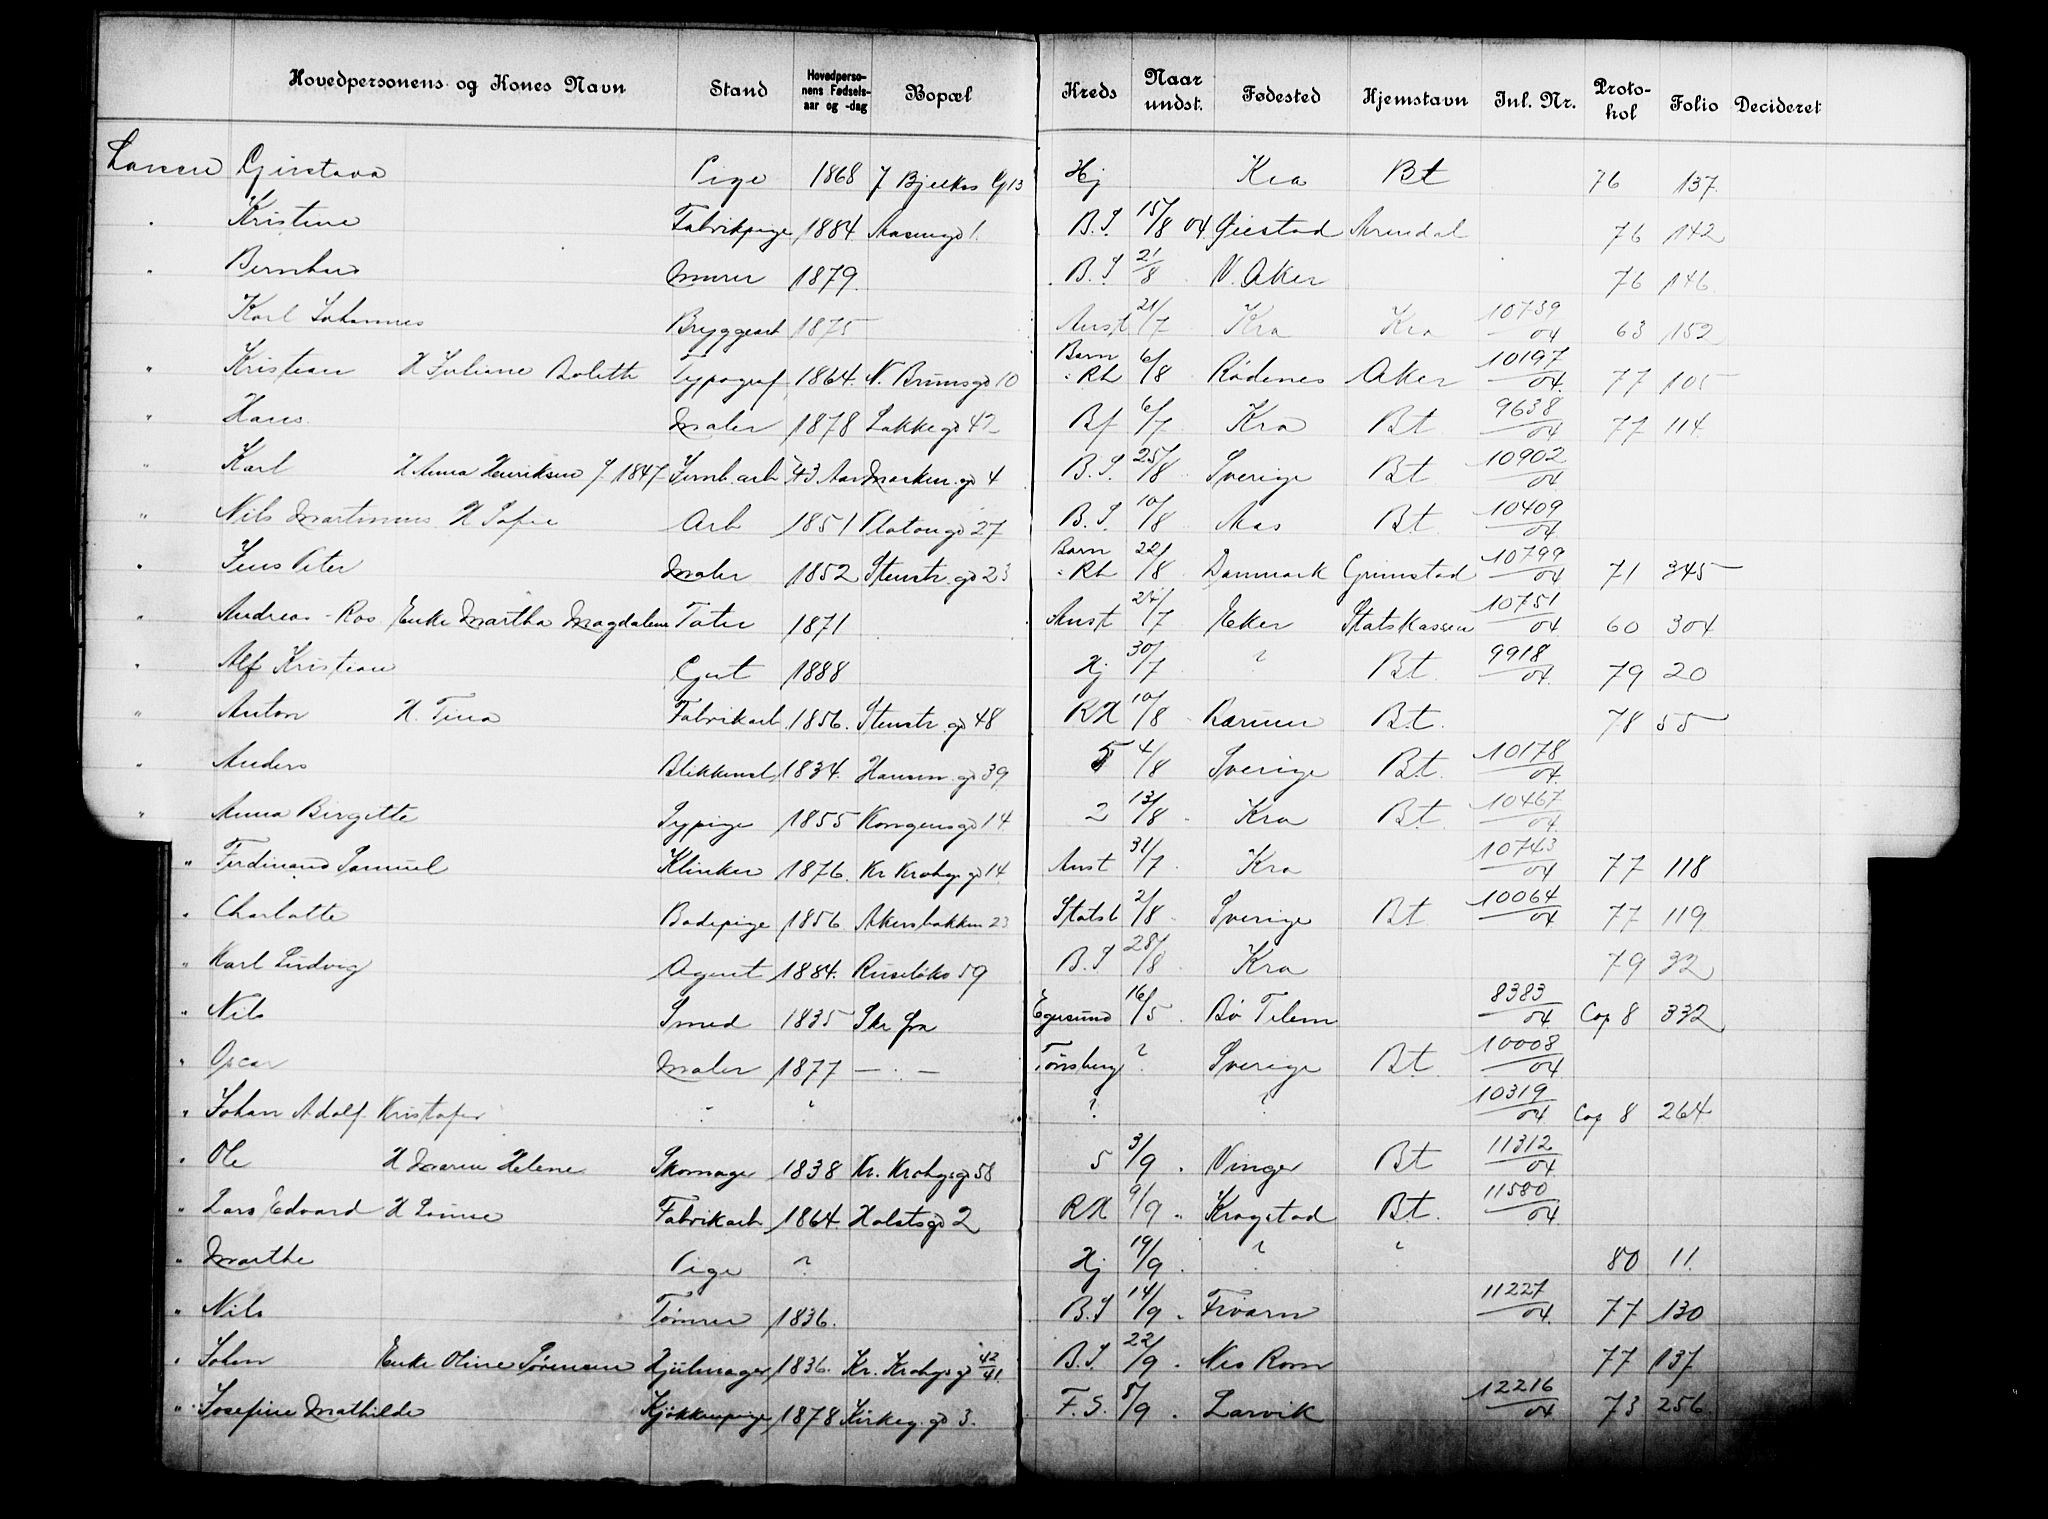 Hovedpersonens og Kones Navn Stand Hovedpersonens Fødselsaar og -dag Bopæl Kreds Naar undst. Fødested Hjemstavn Jnl. Nr. Protokol Folio Decideret
Larsen Gustava Pige 1868 7 Bjelkes G 13 Hj Kra Bt 76 137
" Kristine Fabrikpige 1884 Maseng 1. B.S. 15/8 04. Øiestad Arendal 76 142
" Bernhard Murer 1879. B.S 21/8 V. Aker 76 146
Karl Johannes Bryggearb 1875 Anst 21/7 Kra Kra 10739/04 63 152
" Kristian H Juliane Bolette Typograf 1864. N. Brunsgd 10 Barn Rh 6/8 Rødenes Aker 10197/04. 77 105
" Hans. Maler 1878 Lakkegd 42 Bf 6/7 Kra Bt 9638/04 77 114
" Karl H Anna Henriksen f. 1847 Jernb. arb 43 Aar Marken. gd 4 B.S. 25/8 Sverige Bt 10902/04
" Nils Martinius H Sofie Arb 1851 Platougd 27 B.S. 10/8 Aas Bt. 10409/04.
" Jens Peter Maler 1852 Stenstr. gd 23 Barn Rh 22/8 Danmark Grimstad 10799/04 71 345
" Andreas - Ros Enke Martha Magdalene Tater 1871 Anst 24/7 Eker Statskassen 10751/04 60 304
" Alf Kristian Gut 1888 Hj 30/7 ? Bt. 9918/04. 79 20
" Anton H. Tina Fabrikarb 1856. Stenstr. gd 48 RH 10/8 Bærum Bt. 78 55
" Anders Blikkensl. 1834. Hausm. gd 39 5 4/8 Sverige Bt. 10178/04.
" Anna Birgitte Sypige 1855 Kongensgd 14 2 13/8 Kra Bt. 10467/04.
" Ferdinand Samuel Klinker 1876. Kr Krohgs gd 14. Anst 31/7 Kra 10743/04 77 118
" Charlotte Badepige 1856 Akersbakken 23 Statsb 2/8 Sverige Bt 10064/04 77 119
" Karl Ludvig Agent 1884. Ruseløks 59 B.S 28/8 Kra 79 32
" Nils Smed 1835 Skr fra Egersund 16/5. Bø Telem 8383/04 Cop 8 332
" Oscar Maler 1877 — . — Tønsberg ? Sverige Bt. 10008/04.
" Johan Adolf Kristofer ? ? ? ? 10319/04 Cop 8 264
" Ole H Maren Helene Skomager 1838 Kr. Krohgsgd 58 5 3/9. Vinger Bt 11312/04.
" Lars Edvard H Louise Fabrikarb 1864. Holstsgd 2 RH 9/9 " Kragstad Bt. 11580/04.
" Marthe Pige ? Hj 19/9. ? ? 80 11.
" Nils Tømrer 1836. B.S 14/9. 11227/04. 77 130
" Johan Enke Oline Sørensen Hjulmager 1836. Kr. Krohgs gd 42/41. B.S. 22/9. Nes Rom 77 137
" Josefine Mathilde Kjøkkenpige 1878 Kirkeg. gd 3. F.S. 5/9. Larvik 12216/04 73 256.